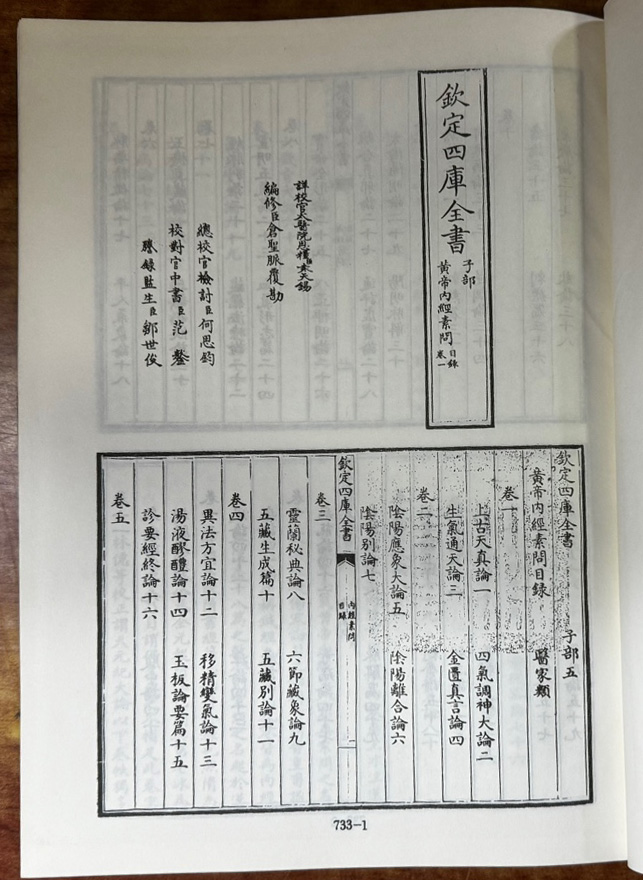 欽定四庫全書
子部
黄帝内經素問
目錄
卷一
詳校官太醫院恩糧臣袁天錫
編修臣倉聖脈覆勘
總校官檢討臣何思鈞
校對官中書臣范鏊
謄錄監生臣鄒世俊
欽定四庫全書 子部五
黄帝内經素問目錄 醫家類
卷一
上古天真論一 四氣調神大論二
生氣通天論三 金匱真言論四
卷二
陰陽應象大論五 陰陽離合論六
陰陽别論七
欽定四庫全書
内經素問
目錄
一
卷三
靈蘭秘典論八 六節藏象論九
五藏生成篇十 五藏别論十一
卷四
異法方宜論十二 移精變氣論十三
湯液醪醴論十四 玉板論要篇十五
診要經終論十六
卷五
733-1